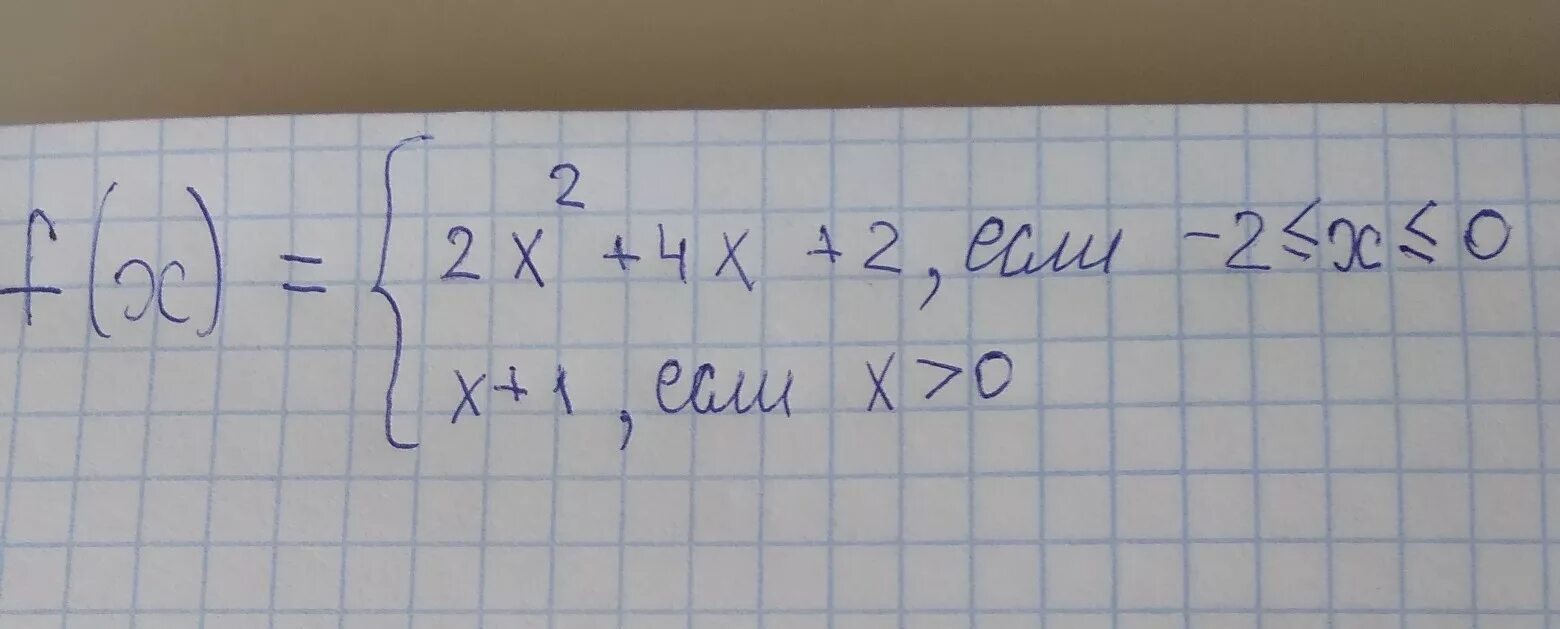 f(x) = { 2x² + 4x + 2, если -2 ≤ x ≤ 0
x + 1, если x > 0